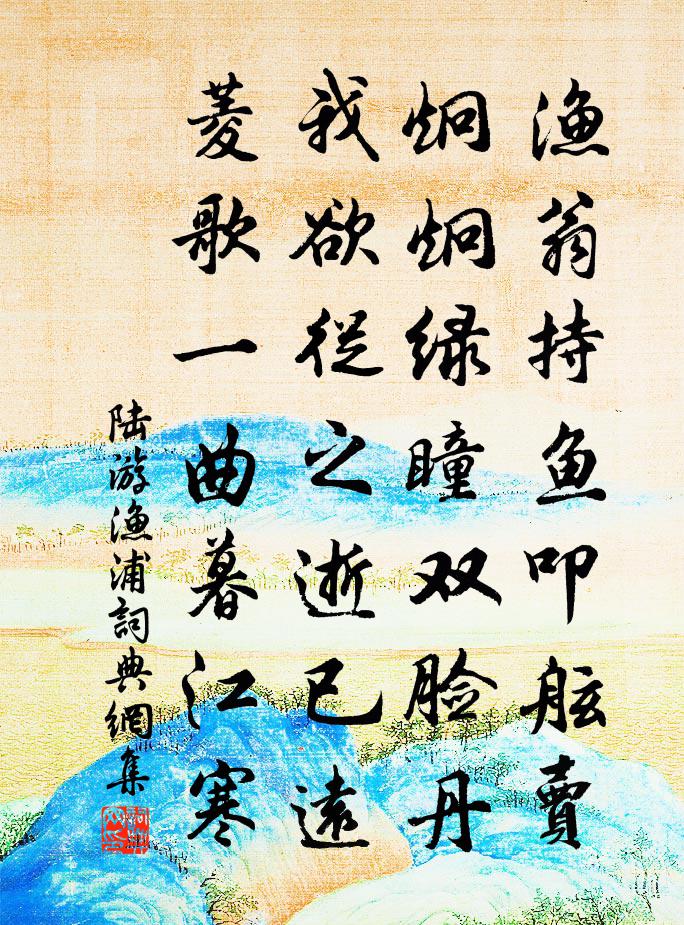 渔翁持魚叩舷賣
炯炯绿瞳双脸丹
我欲從之逝已遠
菱歌一曲暮江寒
陆游渔浦詞典網集